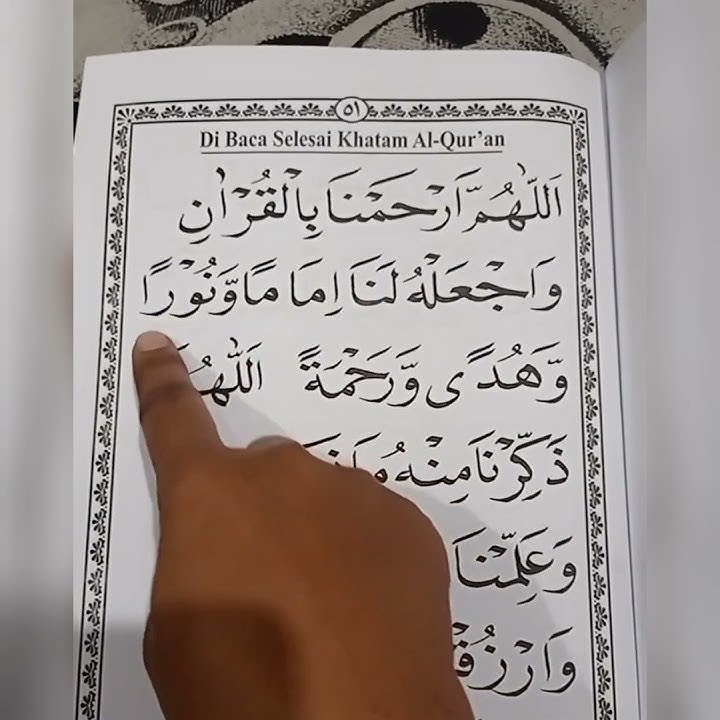 ٥١
Di Baca Selesai Khatam Al-Qur'an
اَللّٰهُمَّ ارْحَمْنَا بِالْقُرْاٰنِ
وَاجْعَلْهُ لَنَا اِمَامًا وَّنُوْرًا
وَّهُدًى وَّرَحْمَةً اَللّٰهُ
ذَكِّرْنَا مِنْهُ مَا
وَعَلِّمْنَا